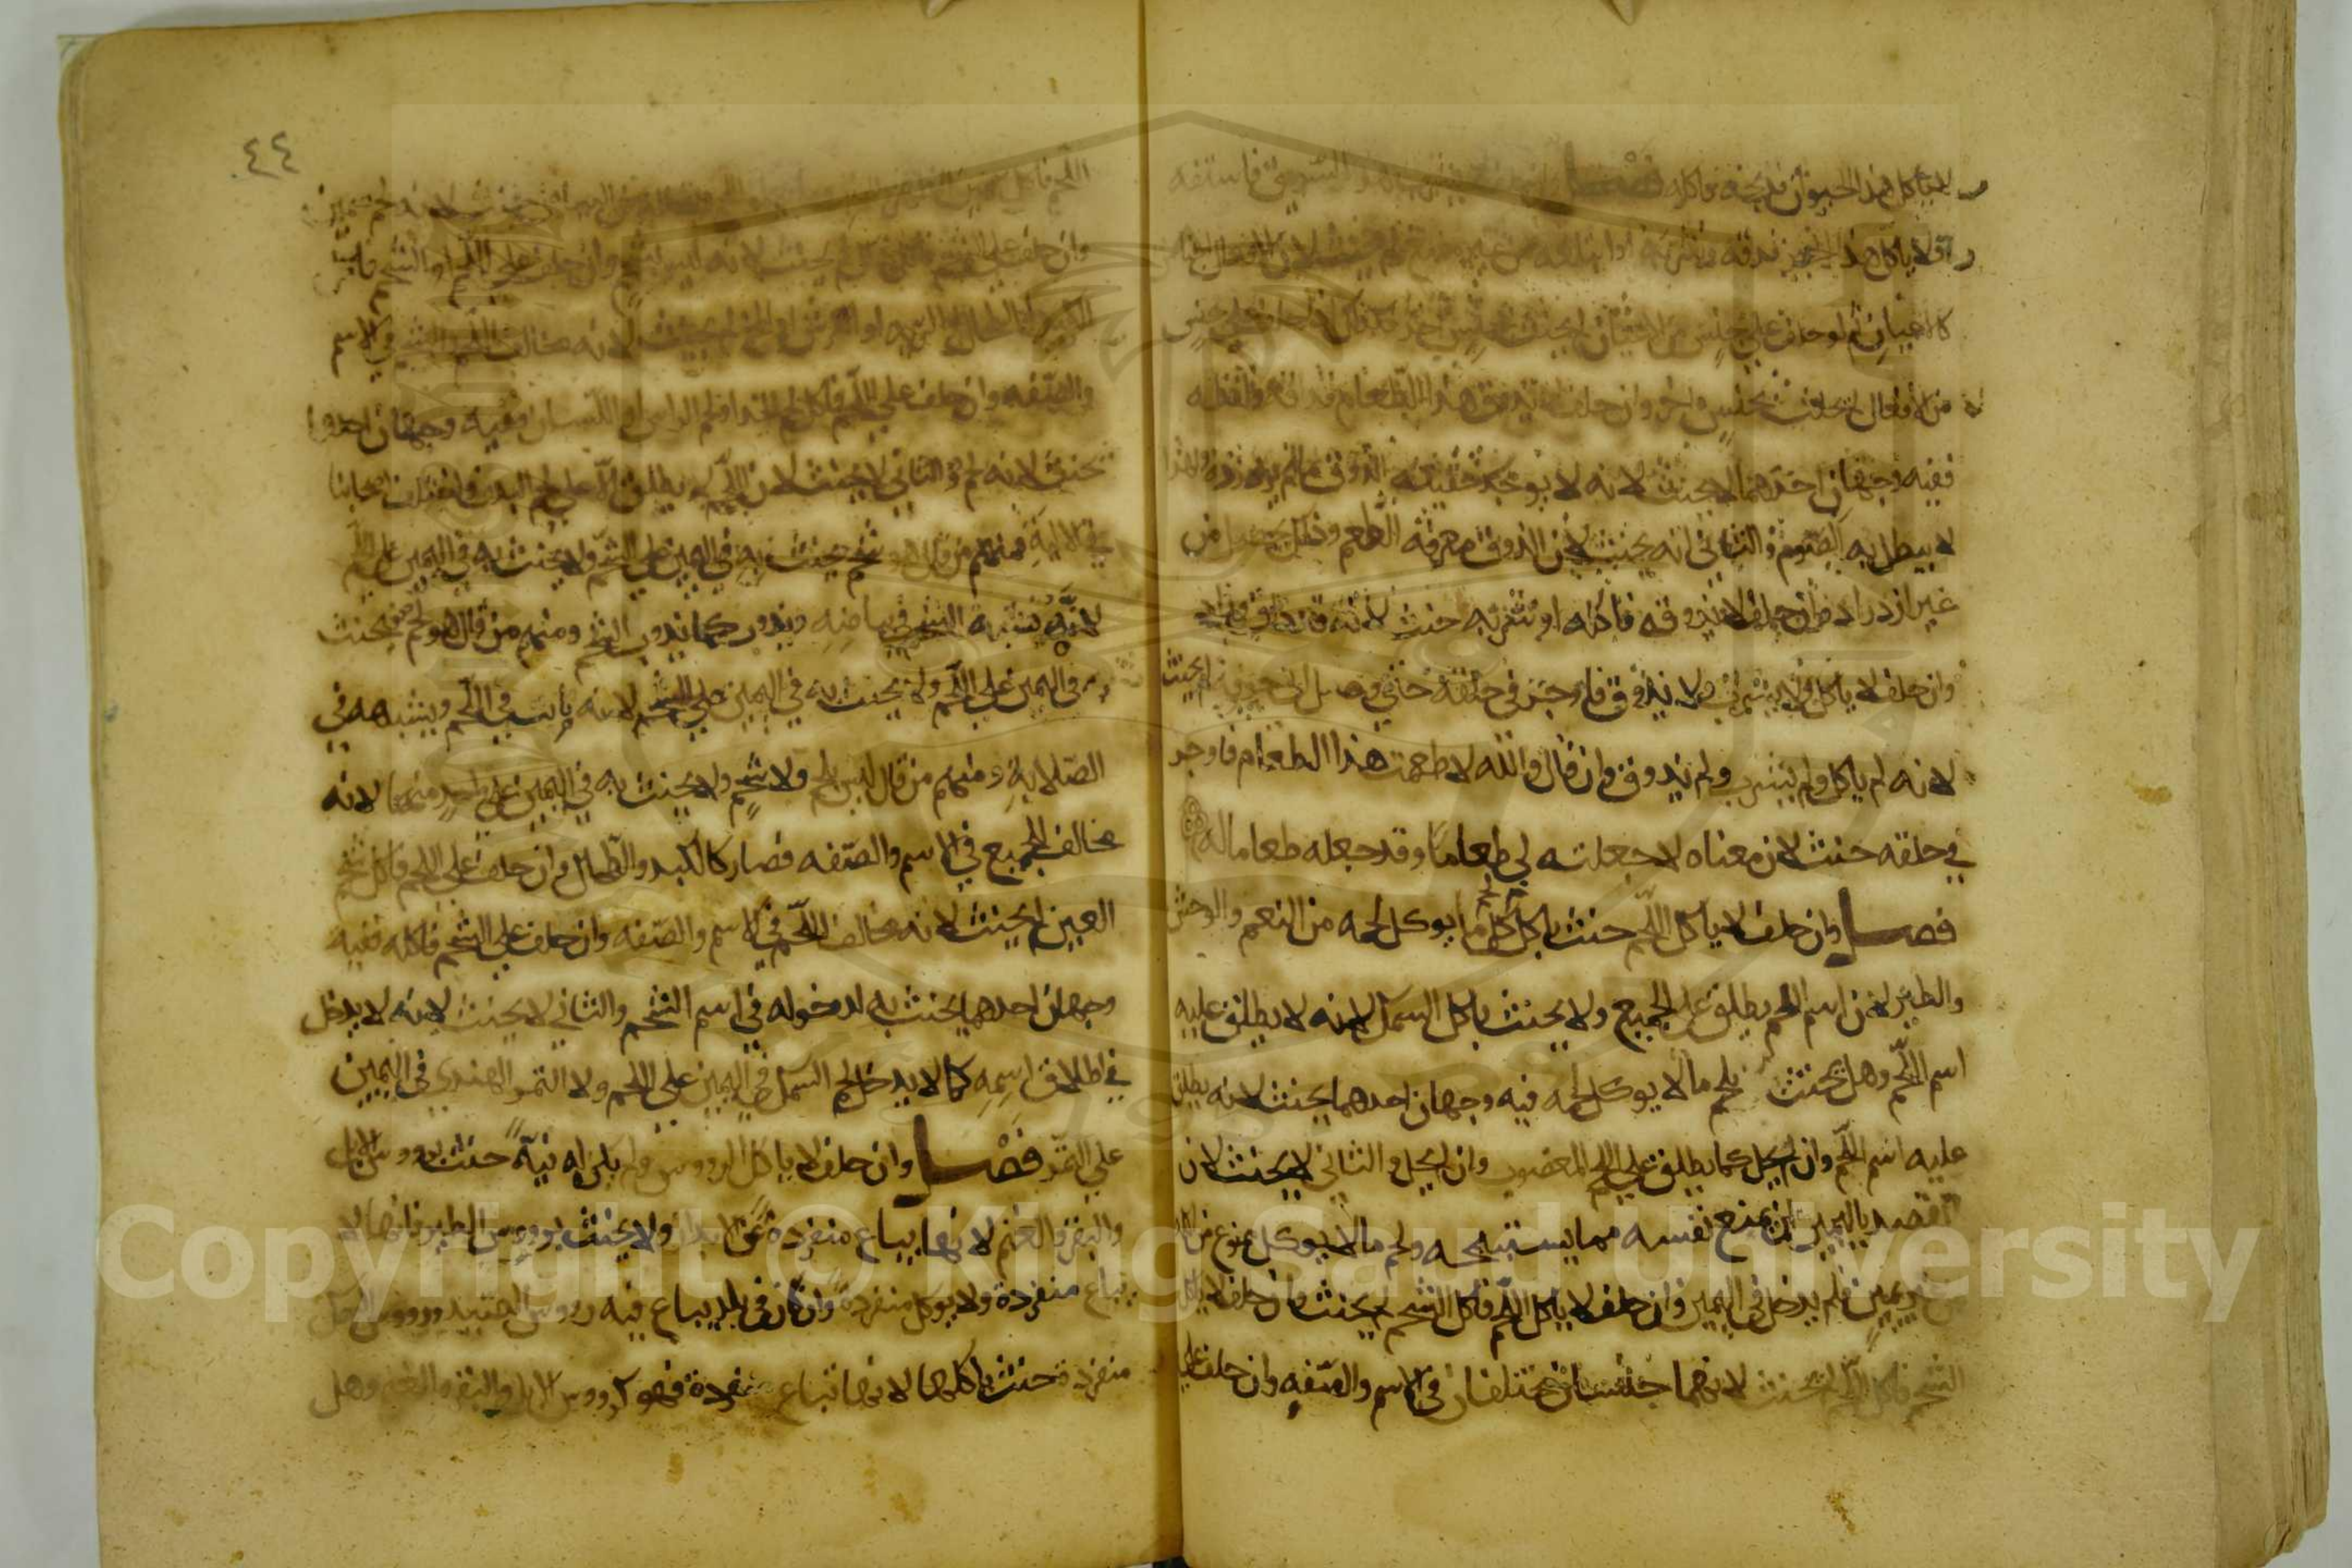 لا ياكل هذا الحيوان فذبحه واكله فصل السويق فاستفه
لا ياكل هذا الخبز فدقه وشربه او ابتلعه من غير مضغ لم يحنث لان الافعال اجناس
كالاعيان ثم لو حلف على جنس من الاعيان لم يحنث بجنس اخر فكذلك اذا حلف على جنس
من الافعال لم يحنث بجنس اخر وان حلف لا يذوق هذا الطعام فذاقه ولفظه
ففيه وجهان احدهما لا يحنث لانه لا يوجد حقيقة الذوق ما لم يزدرده ولهذا
لا يبطل به الصوم والثاني انه يحنث لان الذوق معرفة الطعم وذلك يحصل من
غير ازدراد وان حلف لا يذوقه فاكله او شربه حنث لانه قد ذاق وزاد
وان حلف لا ياكل ولا يشرب ولا يذوق فاوجر في حلقه حتى وصل الى جوفه لم يحنث
لانه لم ياكل ولم يشرب ولم يذوق وان قال والله لا طعمت هذا الطعام فاوجر
في حلقه حنث لان معناه لا جعلته لي طعاما وقد جعله طعاما له
فصل وان حلف لا ياكل اللحم حنث باكل كل ما يوكل لحمه من النعم والوحش
والطير لان اسم اللحم يطلق على الجميع ولا يحنث باكل السمك لانه لا يطلق عليه
اسم اللحم وهل يحنث بلحم ما لا يوكل لحمه فيه وجهان احدهما يحنث لانه يطلق
عليه اسم اللحم وان لم يحل كما يطلق على اللحم المغصوب وان لم يحل والثاني لا يحنث لان
القصد باليمين ان يمنع نفسه مما يستبيحه ولحم ما لا يوكل ممنوع من اكله
من غير يمين فلم يدخل في اليمين وان حلف لا ياكل اللحم فاكل الشحم لم يحنث وان حلف لا ياكل
الشحم فاكل اللحم لم يحنث لانهما جنسان مختلفان في الاسم والصفه وان حلف على
٤٤
اللحم فاكل سمين الظهر لحم سمين
وان حلف على الشحم فاكل لم يحنث لانه ليس بشحم وان حلف على اللحم او الشحم فاكل
الكبد او الطحال او الريه او الكرش او المخ لم يحنث لانه مخالف اللحم والشحم في الاسم
والصفه وان حلف على اللحم فاكل لحم الخد او لحم الراس او اللسان ففيه وجهان احدهما
يحنث لانه لحم والثاني لا يحنث لان اللحم لا يطلق الا على لحم البدن واختلف اصحابنا
في الالية فمنهم من قال هو شحم يحنث به في اليمين على الشحم ولا يحنث به في اليمين على اللحم
لانه يشبه الشحم في بياضه ويذوب كما يذوب الشحم ومنهم من قال هو لحم فيحنث
به في اليمين على اللحم ولا يحنث به في اليمين على الشحم لانه نابت في اللحم ويشبهه في
الصلابة ومنهم من قال ليس بلحم ولا شحم ولا يحنث به في اليمين على واحد منهما لانه
مخالف للجميع في الاسم والصفه فصار كالكبد والطحال وان حلف على اللحم فاكل شحم
العين لم يحنث لانه مخالف للحم في الاسم والصفه وان حلف على الشحم فاكله ففيه
وجهان احدهما يحنث به لدخوله في اسم الشحم والثاني لا يحنث لانه لا يدخل
في اطلاق اسمه كما لا يدخل لحم السمك في اليمين على اللحم ولا التمر الهندي في اليمين
على التمر فصل وان حلف لا ياكل الرووس ولم يكن له نية حنث برووس الابل
والبقر والغنم لانها يباع منفردة عن الابدان ولا يحنث برووس الطير فانها لا
يباع منفردة ولا يوكل منفردة وان كان في بلد يباع فيه رووس الصيد ورووس السمك
منفردة حنث باكلها لانها تباع منفردة فهو كرووس الابل والبقر والغنم وهل